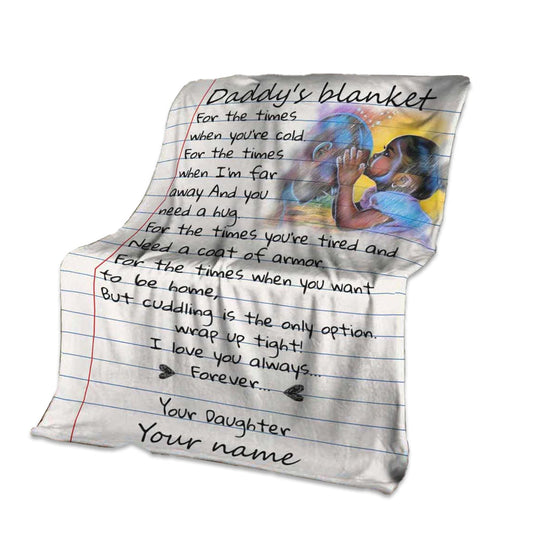 Daddy's blanket
For the times
when you're cold.
For the times
when I'm far
away And you
need a hug.
For the times you're tired and
Need a coat of armor.
For the times when you want
to be home,
But cuddling is the only option.
wrap up tight!
I love you always...
Forever...
Your Daughter
Your name